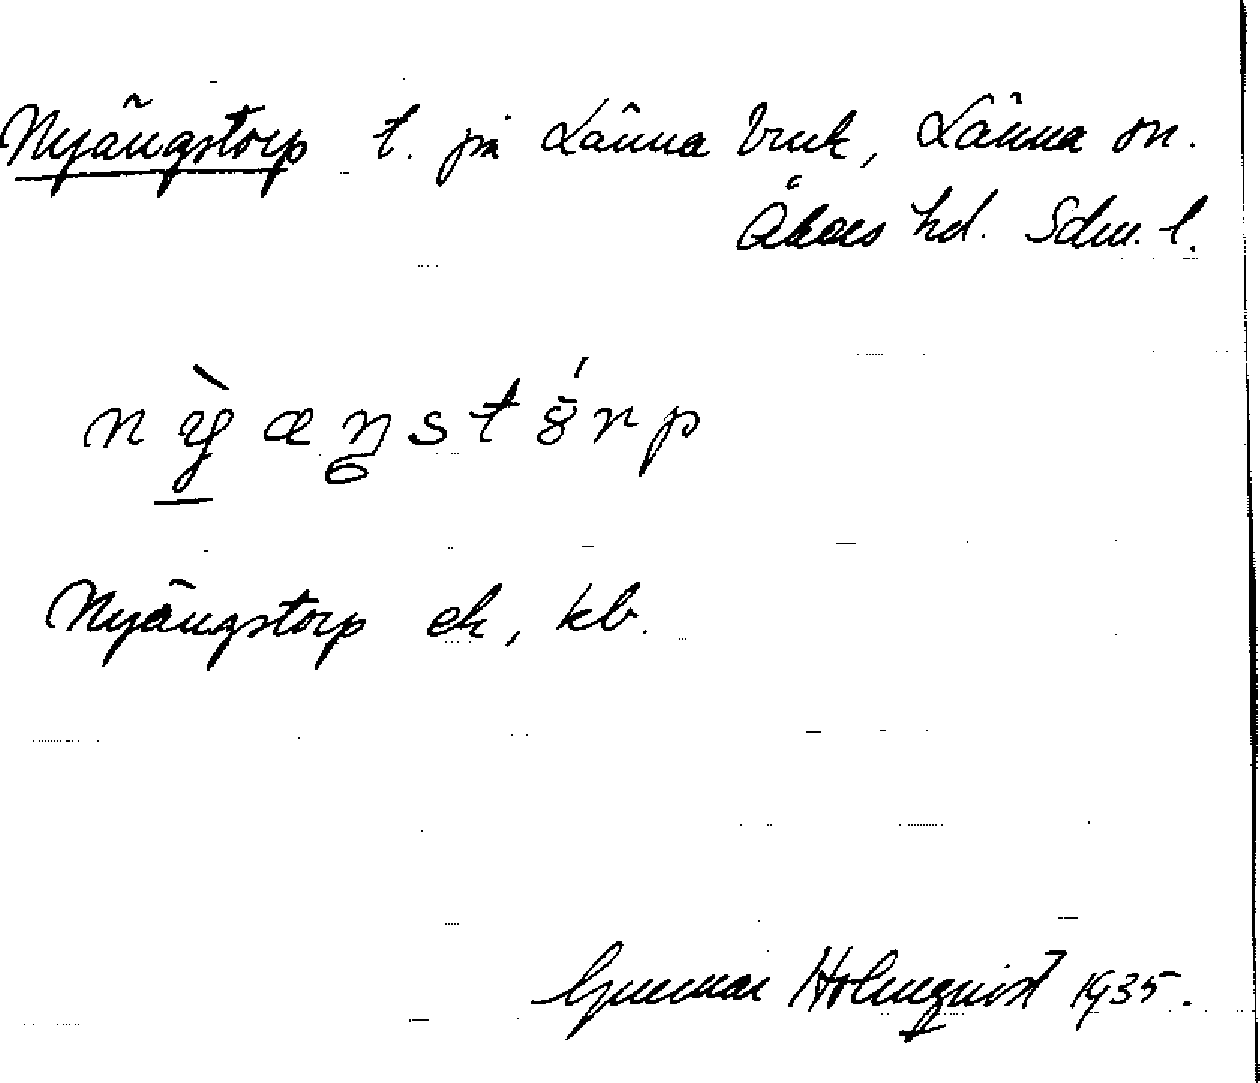 Nyängstorp t. på Länna bruk, Länna sn.
Åkers hd. Sdm. l.
nỳæŋstórp
Nyängstorp ek, kb.
Gunnar Holmquist 1935.